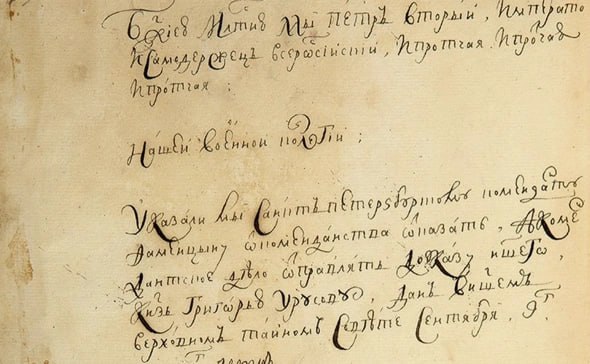 Бжиею Млтию Мы Петръ Вторый, Императо
И Самодержецъ всеросїискїй, И протчая И протчая
И протчая:
Нашей военной колегїи;
Указали мы Санктъ петерзбургскому коменданту
Фаминцыну ѿ комендантства ѿказать, А коме
дантское дѣло ѿправлять до указу ншего,
Кнзь Григорью Урусову, Данъ в ншемъ
верховномъ тайномъ Сентября, 9г